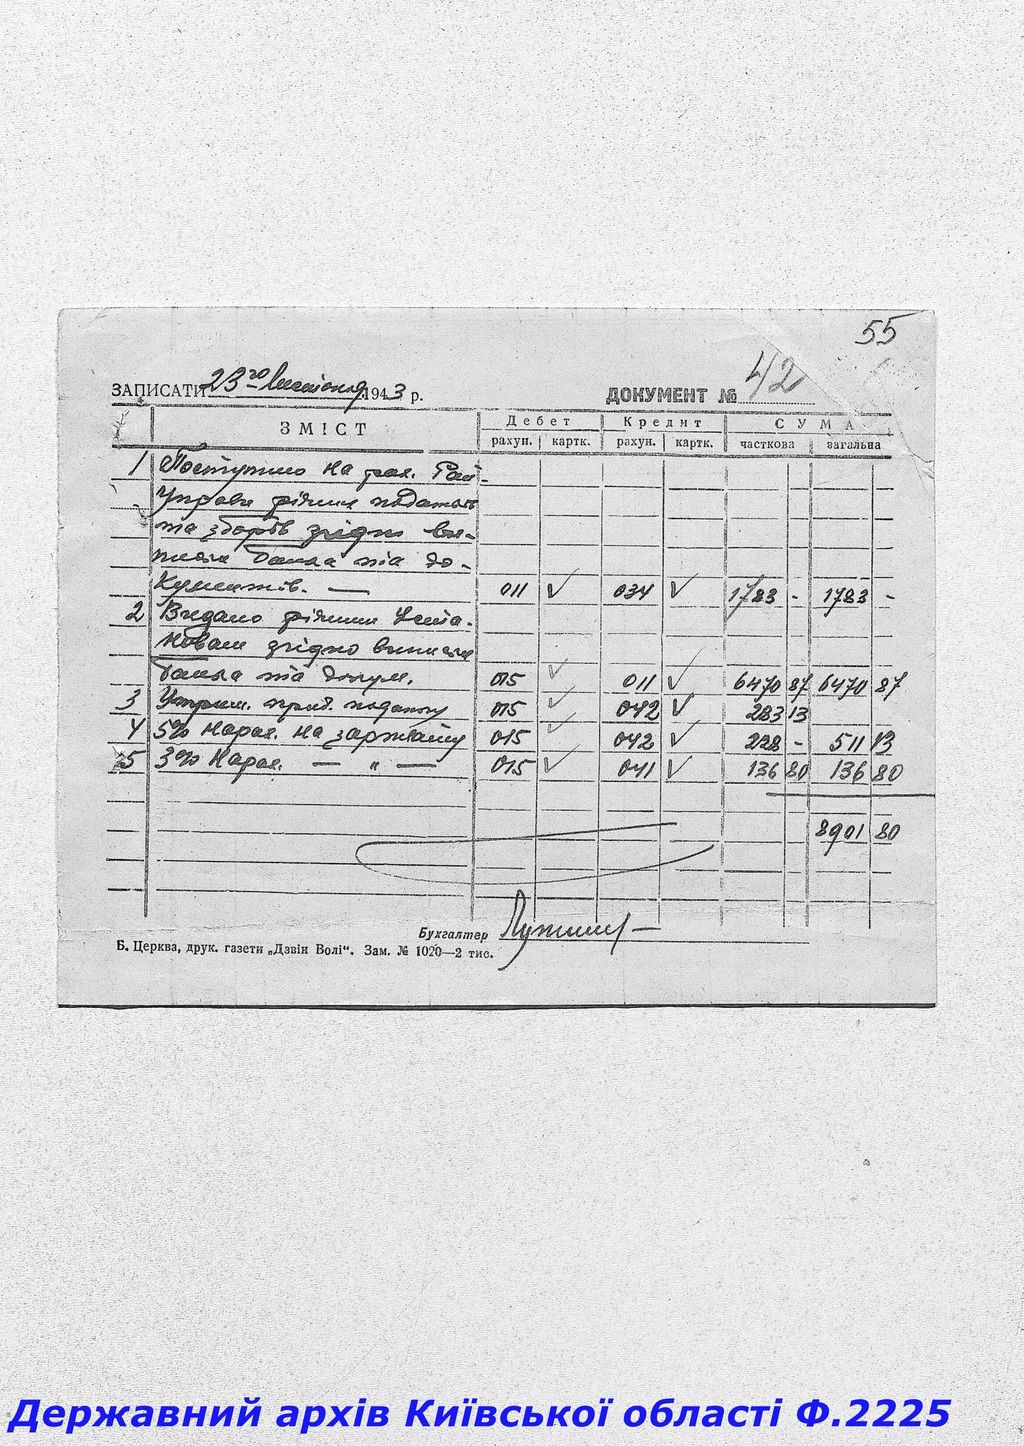 55
ЗАПИСАТИ 23го листопад 1943 р. ДОКУМЕНТ № 42
ЗМІСТ Дебет Кредит СУМА
рахун. картк. рахун. картк. часткова загальна
1 Поступило на рах. Рай-
Управи різних податків
та зборів згідно ви-
писки банка та до-
кументів. — 011 ✓ 034 ✓ 1783 - 1783 -
2 Видано різними Уста-
новам згідно виписки
банка та докум. 015 ✓ 011 ✓ 6470 87 6470 87
3 Утрим. приб. податку 015 ✓ 042 ✓ 283 13
4 5% Нарах. на зарплату 015 ✓ 042 ✓ 228 - 511 13
5 3% Нарах. — " — 015 ✓ 041 ✓ 136 80 136 80
8901 80
Бухгалтер
Б. Церква, друк. газети „Дзвін Волі“. Зам. № 1020—2 тис.
Державний архів Київської області Ф.2225